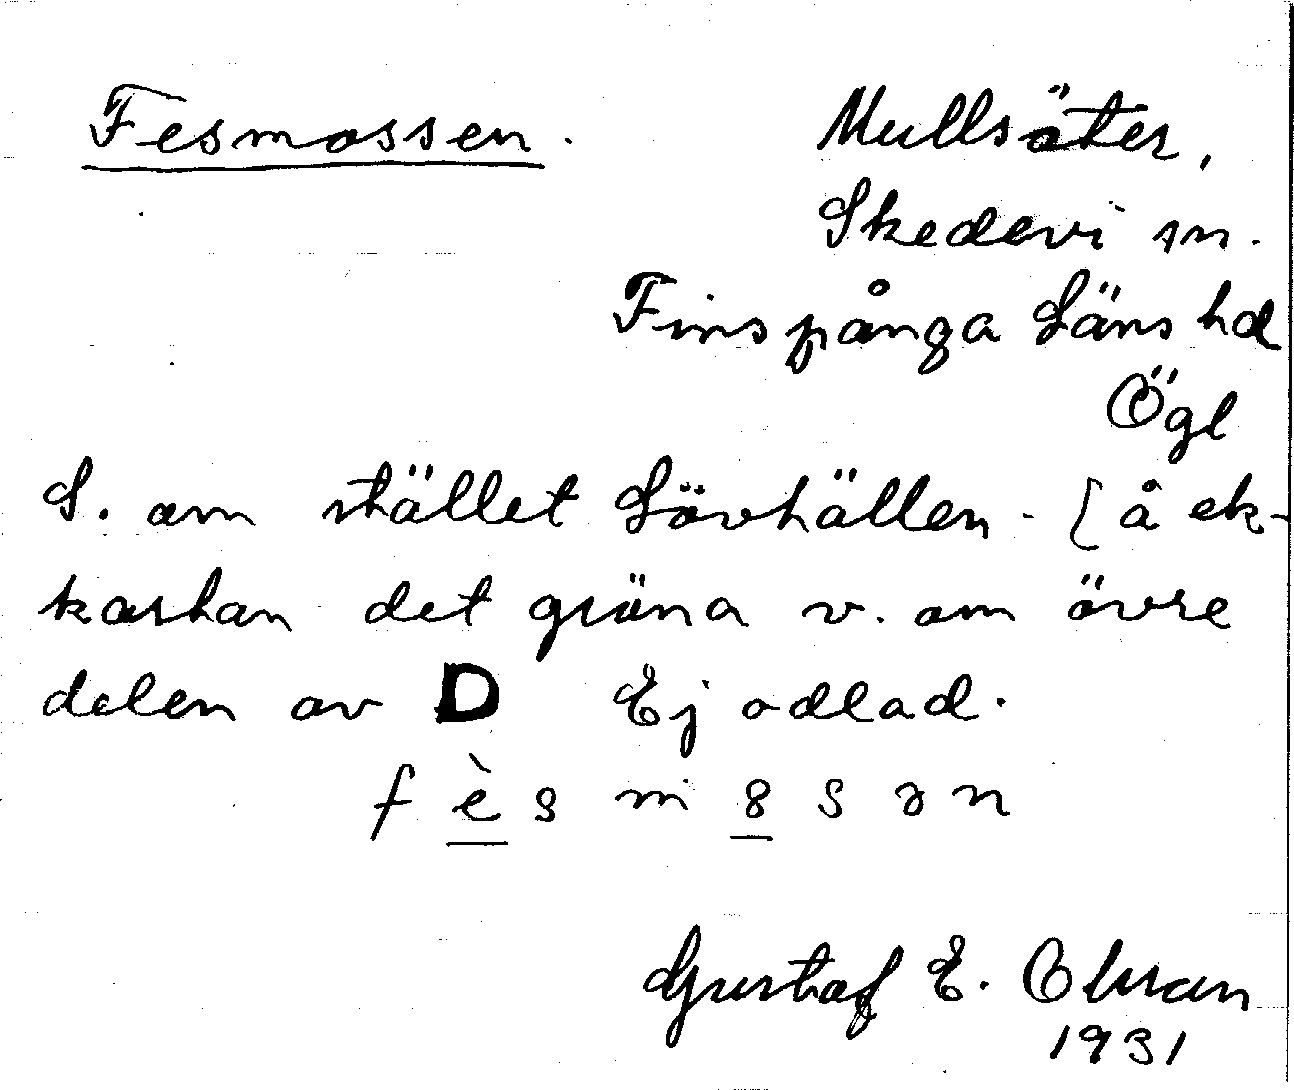 Fesmossen. Mullsäter,
Skedevi sn.
Finspånga Läns hd
Ögl
S. om stället Lövhällen. [å ek-
kartan det gröna v. om övre
delen av D Ej odlad.
f è s m 8 s ə n
Gustaf E. Olsson
1931